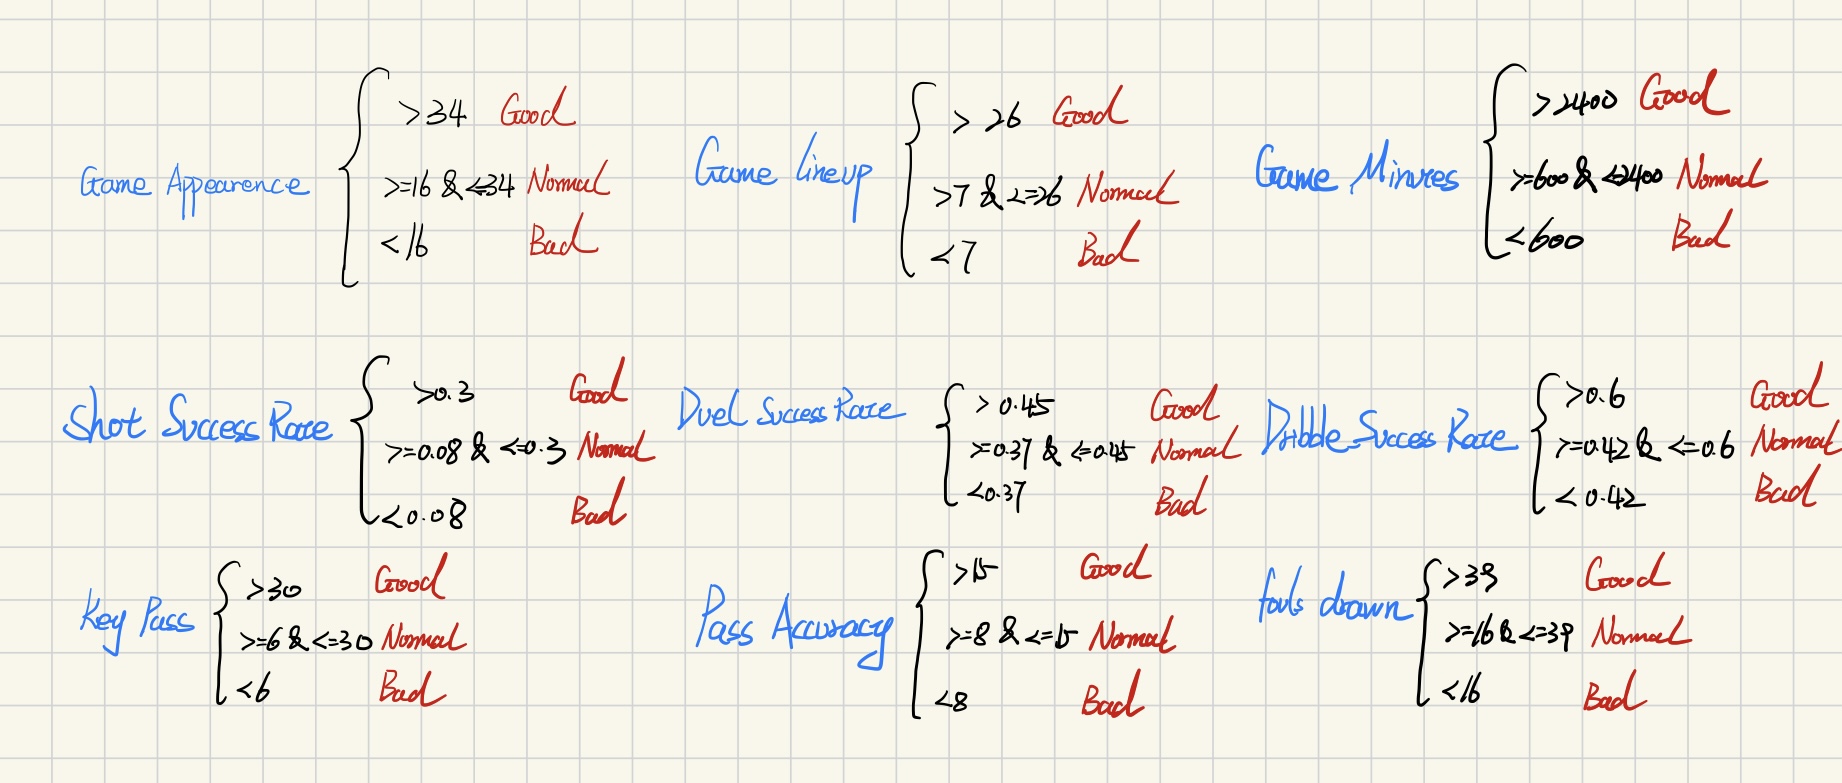 Game Appearence
>34 Good
>=16 & <=34 Normal
<16 Bad
Game Lineup
> 26 Good
>7 & <=26 Normal
<7 Bad
Game Minutes
>2400 Good
>=600 & <=2400 Normal
<600 Bad
Shot Success Rate
>0.3 Good
>=0.08 & <=0.3 Normal
<0.08 Bad
Duel Success Rate
> 0.45 Good
>=0.37 & <=0.45 Normal
<0.37 Bad
Dribble Success Rate
>0.6 Good
>=0.42 & <=0.6 Normal
<0.42 Bad
Key Pass
>30 Good
>=6 & <=30 Normal
<6 Bad
Pass Accuracy
>15 Good
>=8 & <=15 Normal
<8 Bad
fouls drawn
>39 Good
>=16 & <=39 Normal
<16 Bad